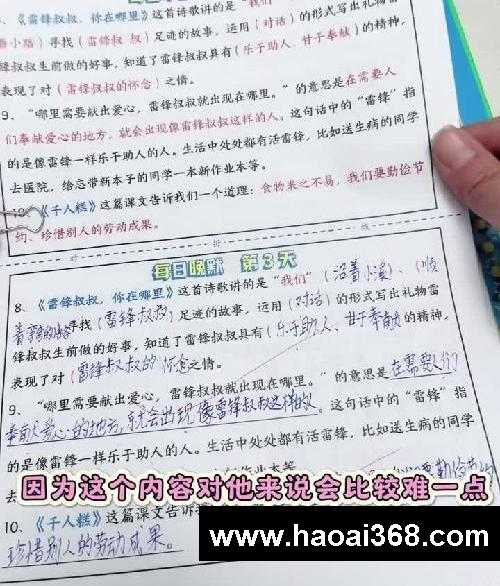 8、《雷锋叔叔,你在哪里》这首诗歌讲的是“我们”
着小路)寻找(雷锋叔 叔)足迹的故事,运用(对话)的形式写出礼物雷
锋叔叔生前做的好事,知道了雷锋叔叔具有(乐于助人、甘于奉献)的精神,
表现了对(雷锋叔叔的怀念)之情。
9、“哪里需要献出爱心,雷锋叔叔就出现在哪里。”的意思是在需要人
们奉献爱心的地方,就会出现像雷锋叔叔这样的人。这句话中的“雷锋”指
的是像雷锋一样乐于助人的人。生活中处处都有活雷锋,比如送生病的同学
去医院,给忘带新本子的同学一本新作业本等。
《千人糕》这篇课文告诉我们一个道理:食物来之不易,我们要勤俭节
约、珍惜别人的劳动成果。
对 折 线
每日晚默 第3天
8、《雷锋叔叔,你在哪里》这首诗歌讲的是“我们”(沿着小溪)、(
寻找(雷锋叔叔)足迹的故事,运用(对话)的形式写出礼物雷
锋叔叔生前做的好事,知道了雷锋叔叔具有(乐于助人、甘于奉献)的精神,
表现了对(雷锋叔叔的怀念之情。
9、“哪里需要献出爱心,雷锋叔叔就出现在哪里。”的意思是在需要人们
奉献爱心的地方,就会出现像雷锋叔叔这样的。这句话中的“雷锋”指
的是像雷锋一样乐于助人的人。生活中处处都有活雷锋,比如送生病的同学
去
因为这个内容对他来说会比较难一点
10、《千人糕》这篇课文告诉
珍惜别人的劳动成果。
www.haoai368.com